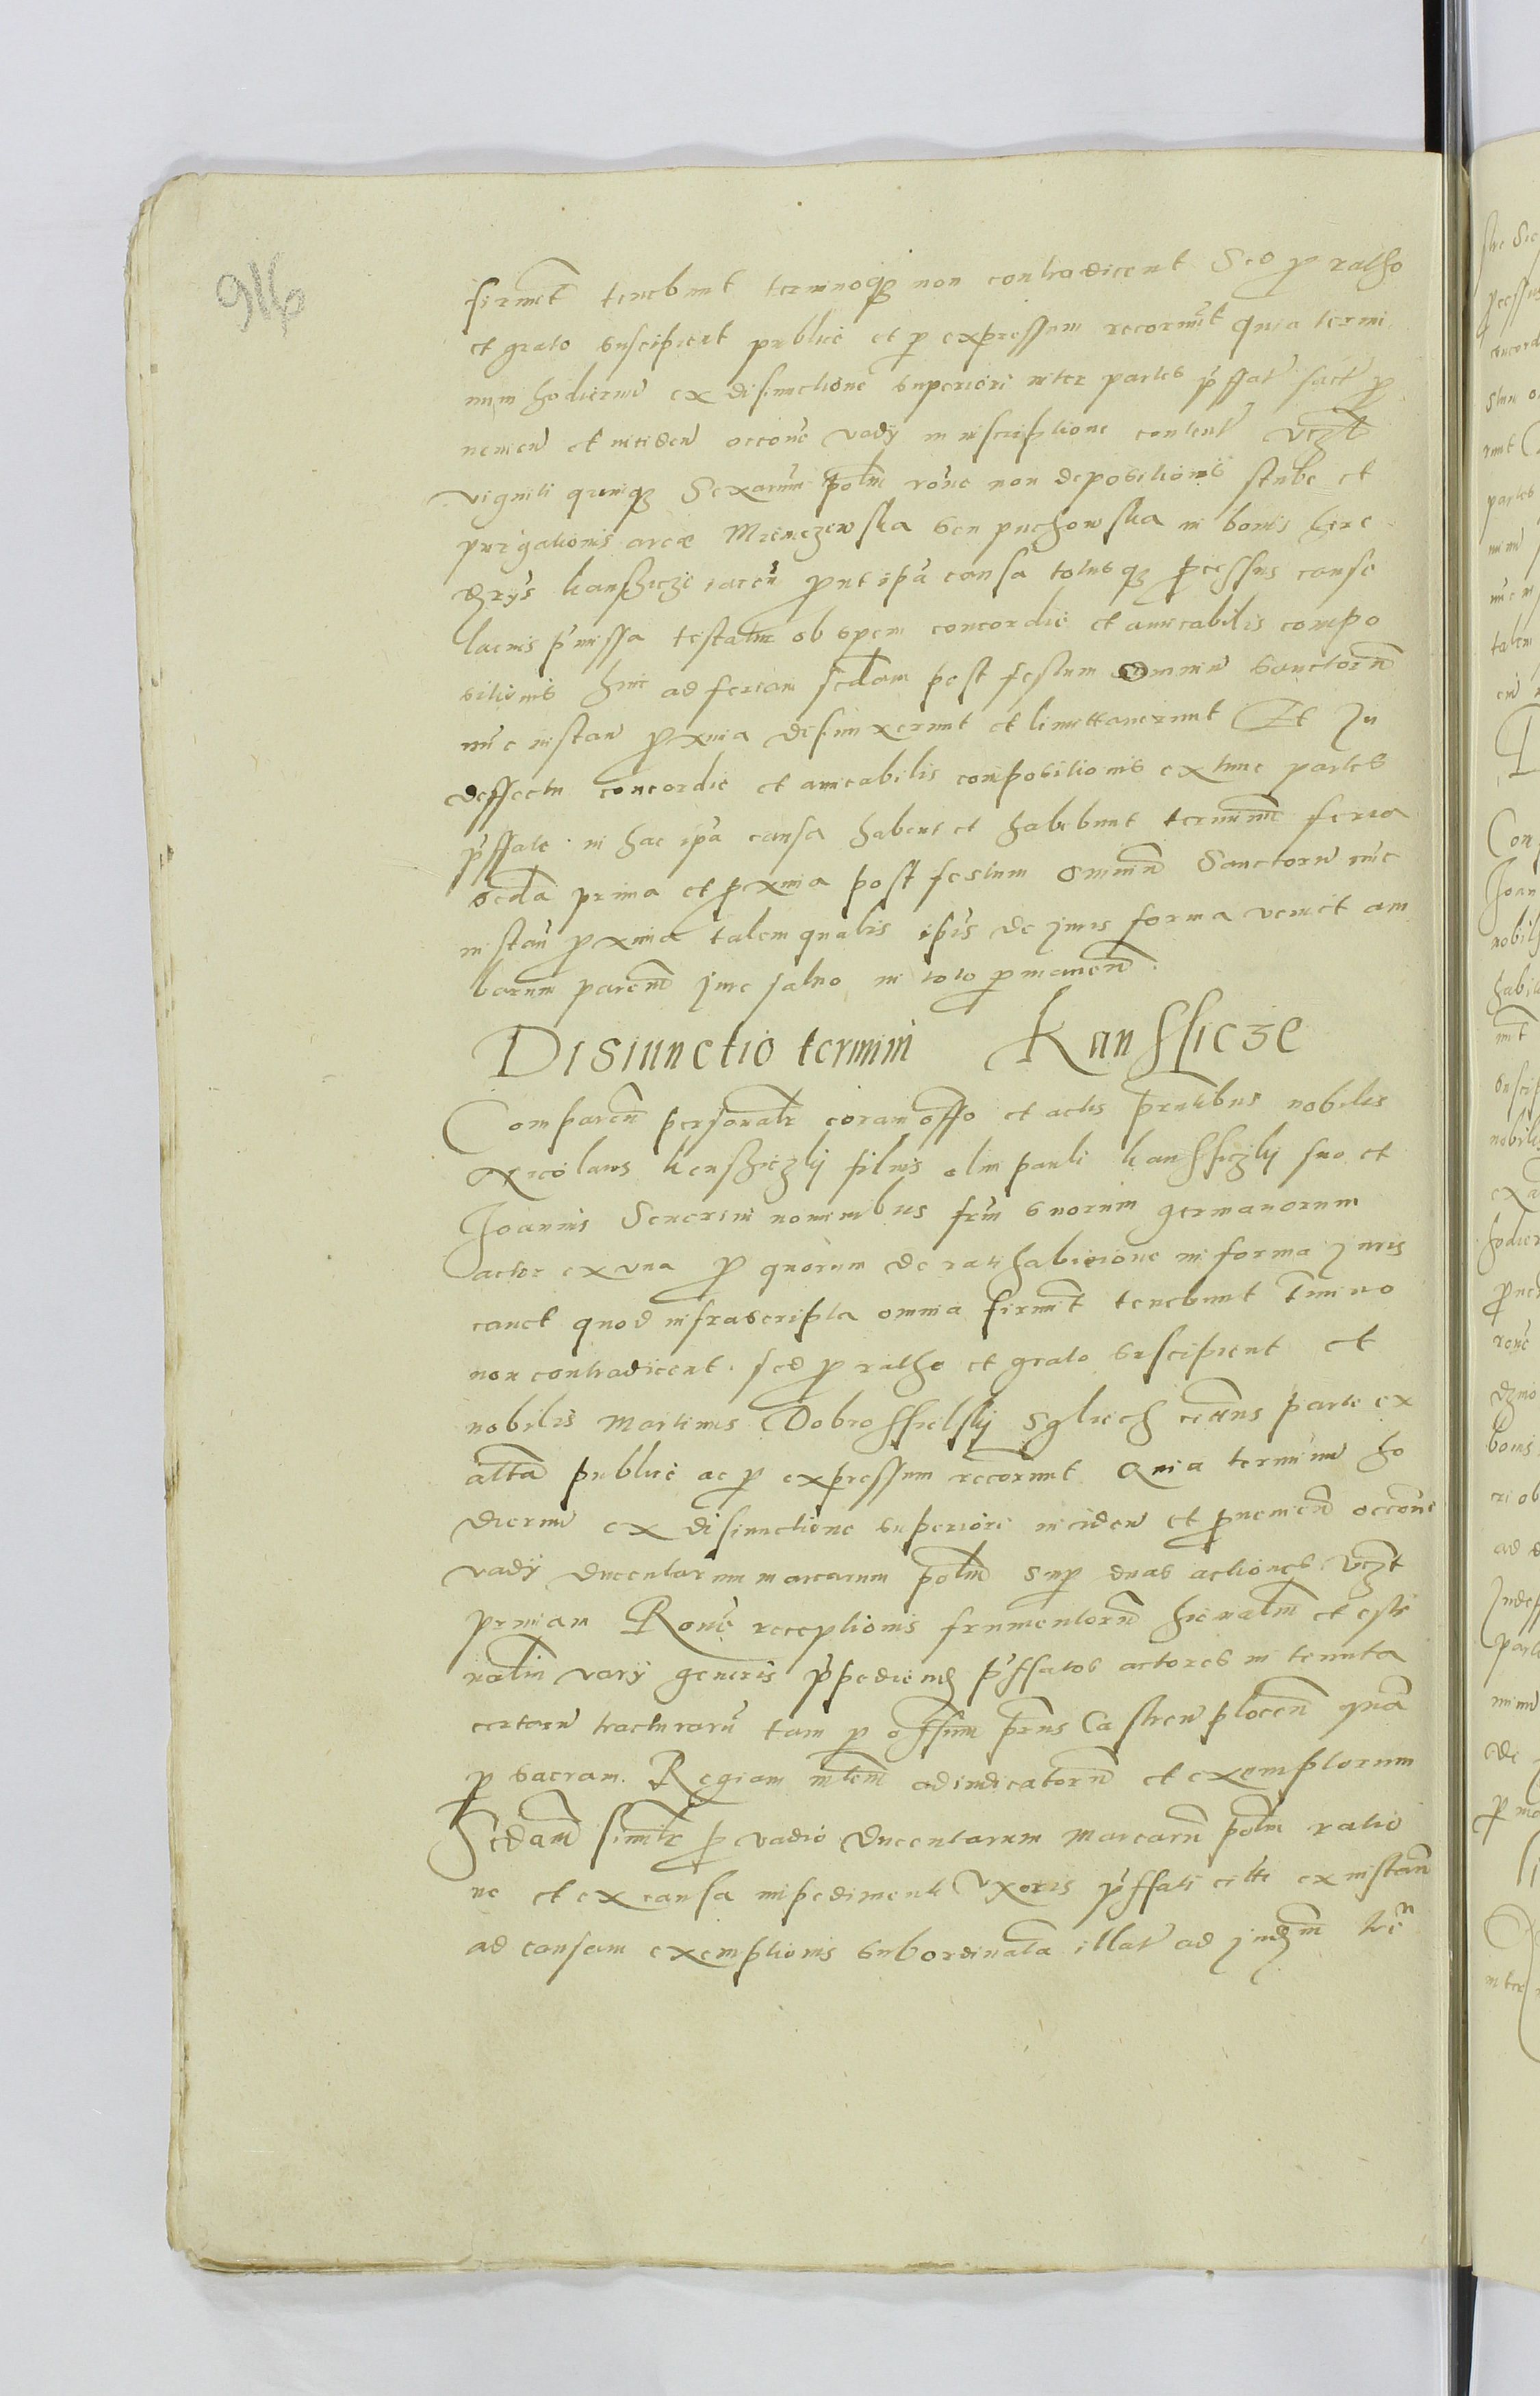 916
firmit tenebunt terminoq non contradicent Sed p ratho
et grato suscipient publice et p expressum recorunt quia termi
num hodiernu ex disiunctione superiori inter partes pffat fact p
nemien et inciden occone vadij in inscriptione content vczt
viginti quinq Sexarum polm rone non depositionis stube et
purgationis aree Mienczewska seu puchowska in bonis here
dijs kanssicze iacen put ipa causa totusq pcessus cause
lacius pmissa testatur ob spem concordie et amicabilis compo
sitionis hinc ad feriam scdam post festum Omniu Sanctoru
nuc instan pxima disiunxerunt et limittauerunt Et In
deffectu concordie et amicabilis compositionis extunc partes
pffate in hac ipa causa habent et habebunt terminum feria
scda prima et pxima post festum Omniu Sanctoru nuc
instan pxima talem qualis ipis de juris forma venit am
barum parcium jure saluo in toto pmanen
Disiunctio termini Kanssicze
Comparen personalr coram offo et actis pntibus nobiles
Nicolaus kensziczky filius olim pauli kanssiczky suo et
Joannis Seuerini nominibus frum suorum germanorum
actor ex vna p quorum de ratihabicione in forma juris
cauet quod infrascripta omnia firmit tenebunt tmino
non contradicent sed p ratho et grato suscipient et
nobilis Martinus Dobrossielsky Sgliech cittus parte ex
altta publice ac p expressum recorunt Quia terminu ho
diernu ex disiunctione superiori inciden et pnemien occone
vadij ducentarum marcarum polm sup duas actiones vczt
primam Rone receptionis frumentoru hiemaliu et esti
naliu varij generis ppediend pffatos actores in tenuta
certaru tracturaru tam p offum pns Castren plocen qua
p sacram Regiam mtem adiudicatoru et exemptorum
Scdam simlr p vadio ducentarum Marcaru polm ratio
ne et ex causa impedimenti vxoris pffati citti ex instan
ad causam exemptionis subordinata illat ad judm tre